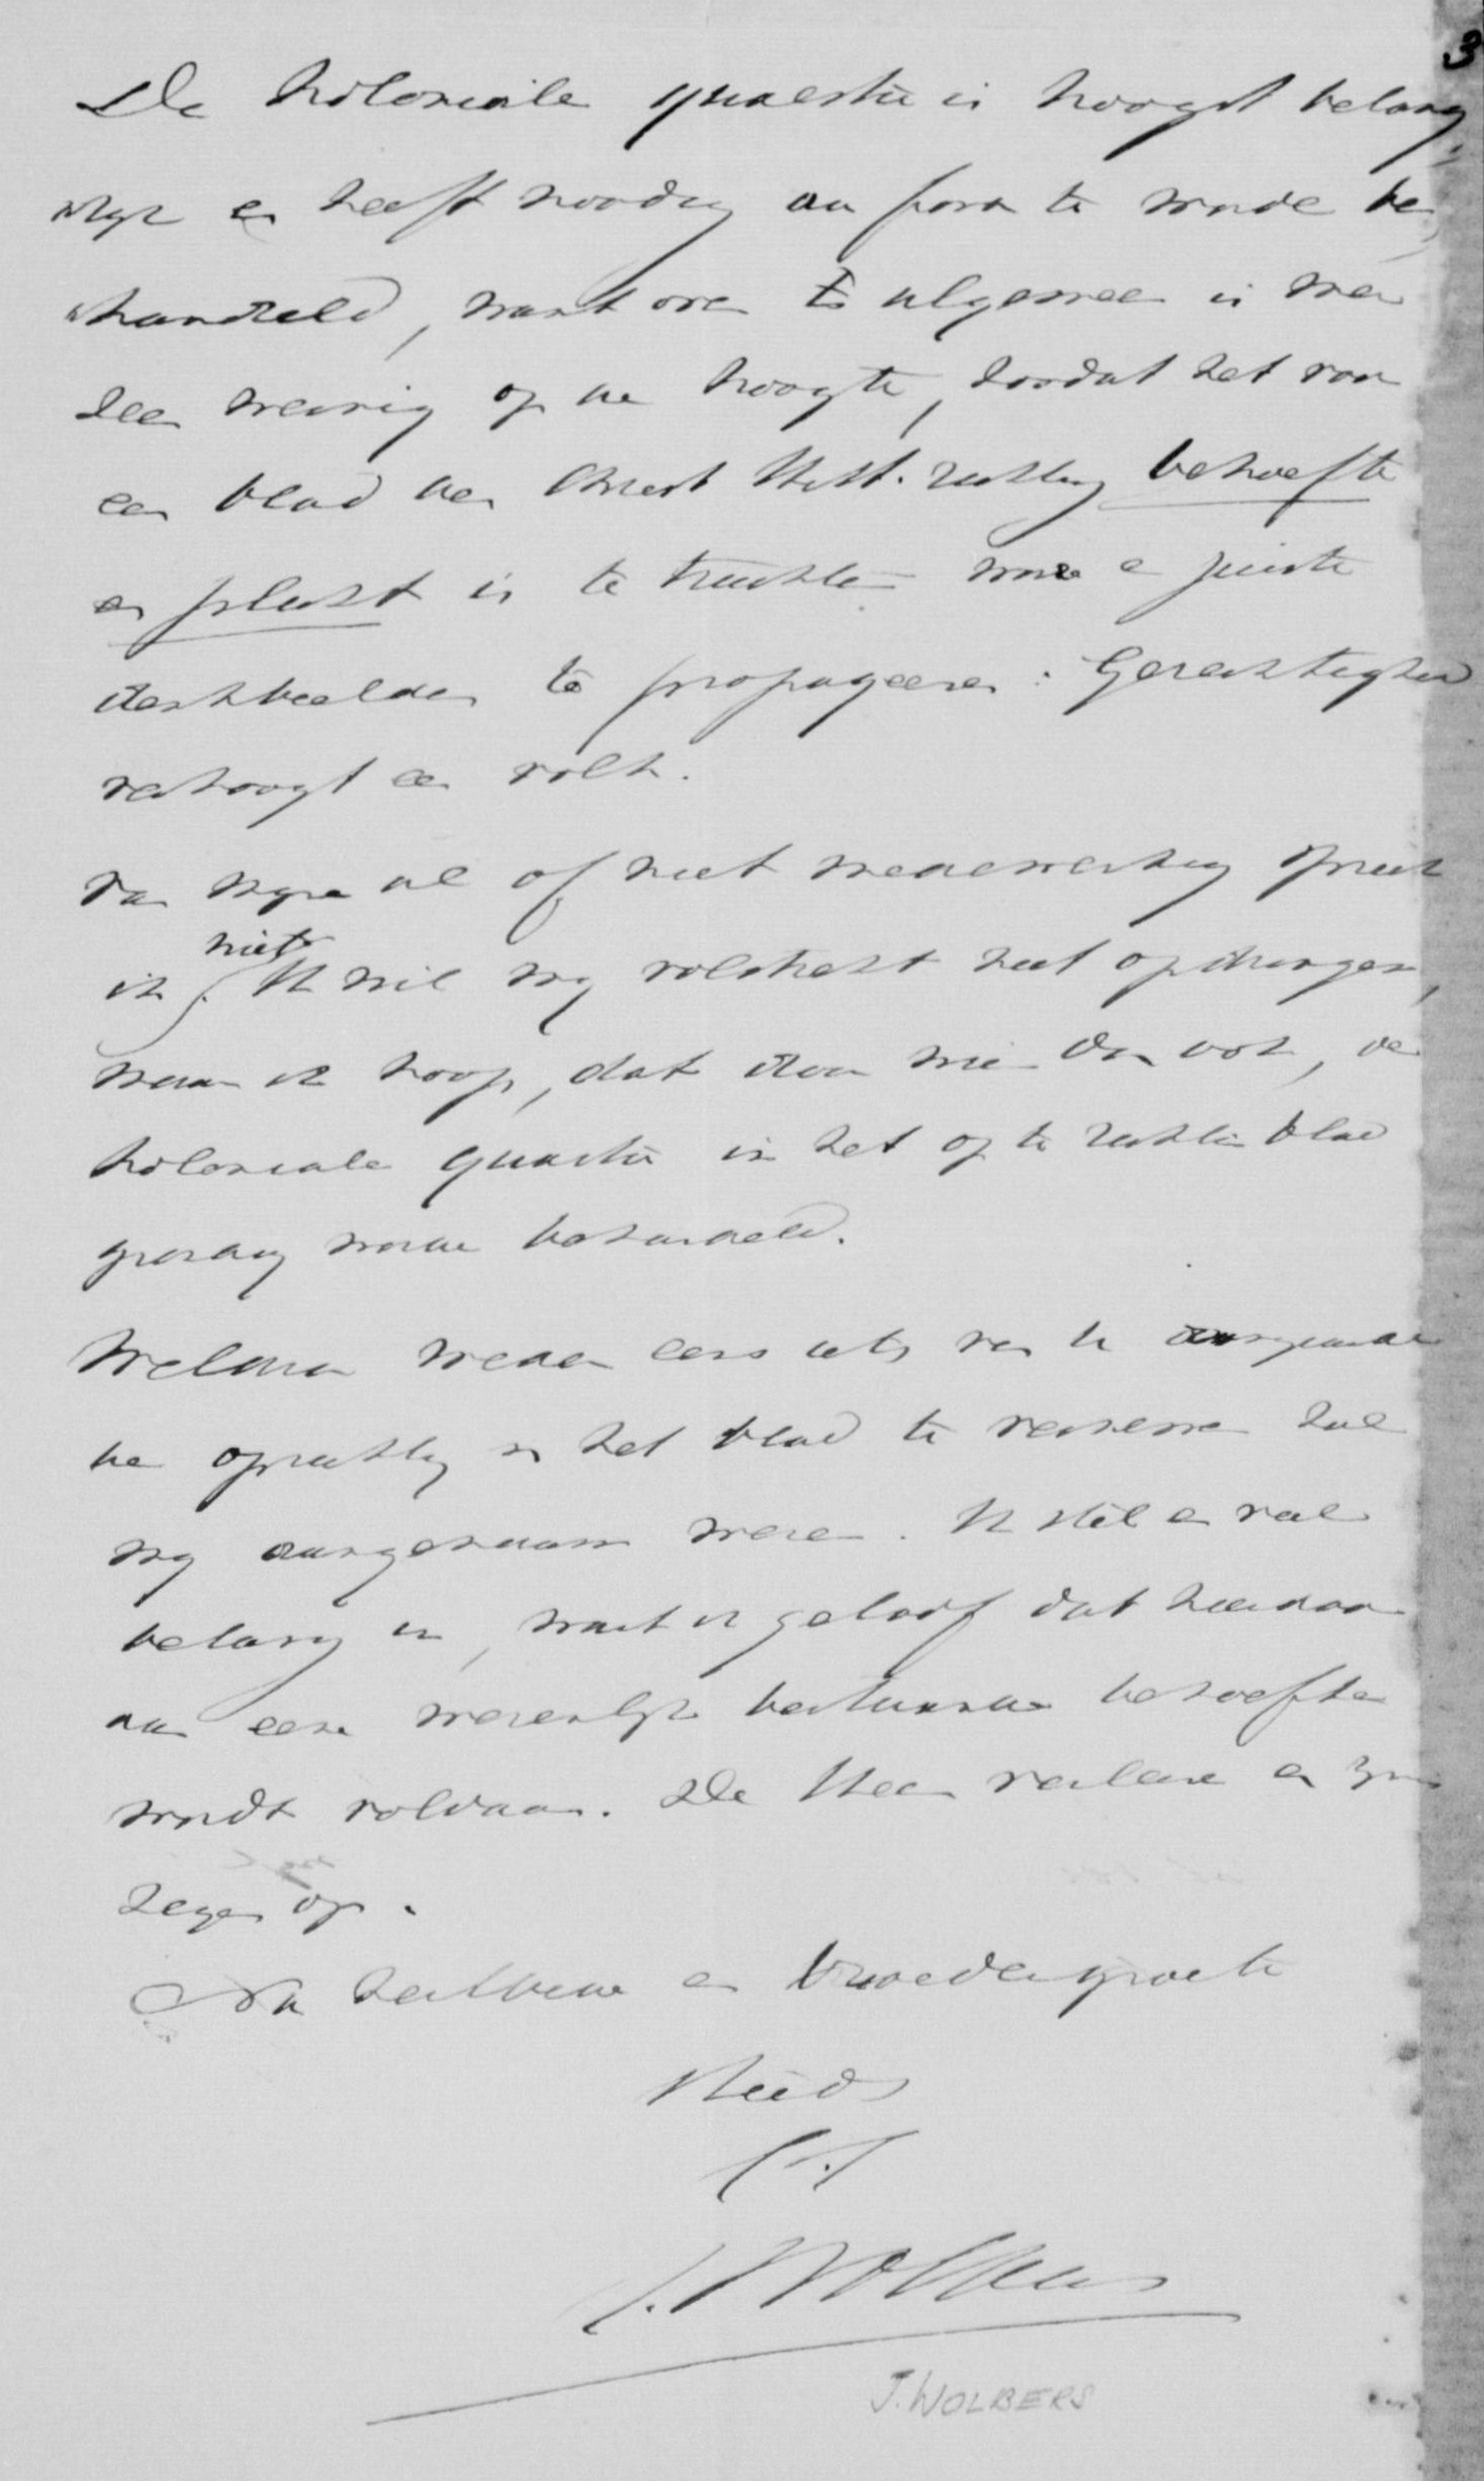 3
De koloniale quaestie is hoogst belang-
rijk en heeft noodig au fond te worden be-
handeld, want over 't algemeen is men
zeer weinig op de hoogte, zoodat het voor
een blad der Christ. Hist. richting behoefte
en plicht is te trachten ware en juiste
denkbeelden te propageeren: Gerechtigheid
verhoogt een volk.
Van mijne al of niet medewerking spreek
ik niet. Ik wil mij volstrekt niet opdringen,
maar ik hoop, dat door wie dan ook, de
koloniale quaestie in het op te richten blad
grondig worde behandeld.
Weldra weder eens iets van u aangaande
de oprichting van het blad te vernemen zal
mij aangenaam wezen. Ik stel er veel
belang in, want ik geloof dat hierdoor
aan eene wezenlijke bestaande behoefte
wordt voldaan. De Heer verleene er zijn
zegen op.
Na heilbede en broedergroete
Steeds
t.t.
J. Wolbers
J. WOLBERS